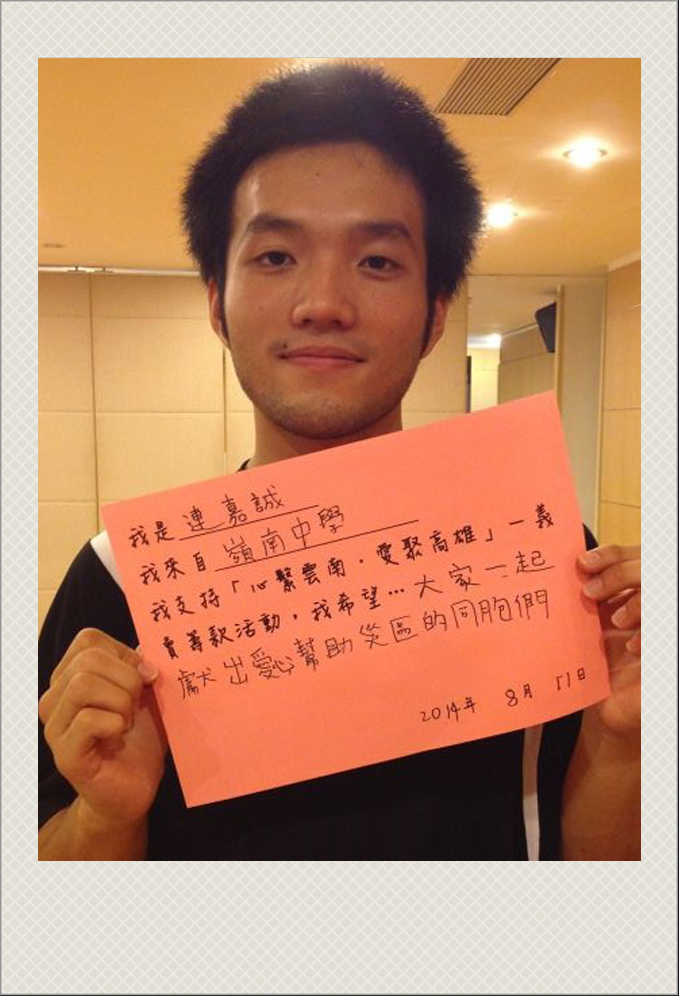 我是 連嘉誠
我來自 嶺南中學
我支持「心繫雲南·愛聚高雄」一義
賣籌款活動，我希望…大家一起
獻出愛心幫助災區的同胞們
2014年 8月 11日